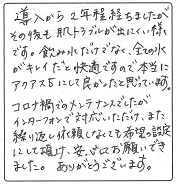 導入から2年程経ちましたが
その後も肌トラブルが出にくい様
です。飲み水だけでなく、全ての水
がキレイだと快適ですので本当に
アクアス5にして良かったと思っています。
コロナ禍でのメンテナンスでしたが
インターフォンで対応いただけ、また
繰り返し依頼しなくても希望の設定
にして頂け、安心してお願いでき
ました。ありがとうございます。